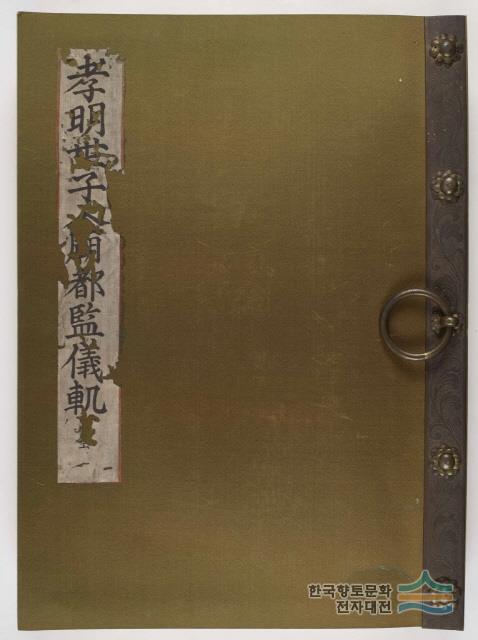 孝明世子入廟都監儀軌
한국향토문화
전자대전